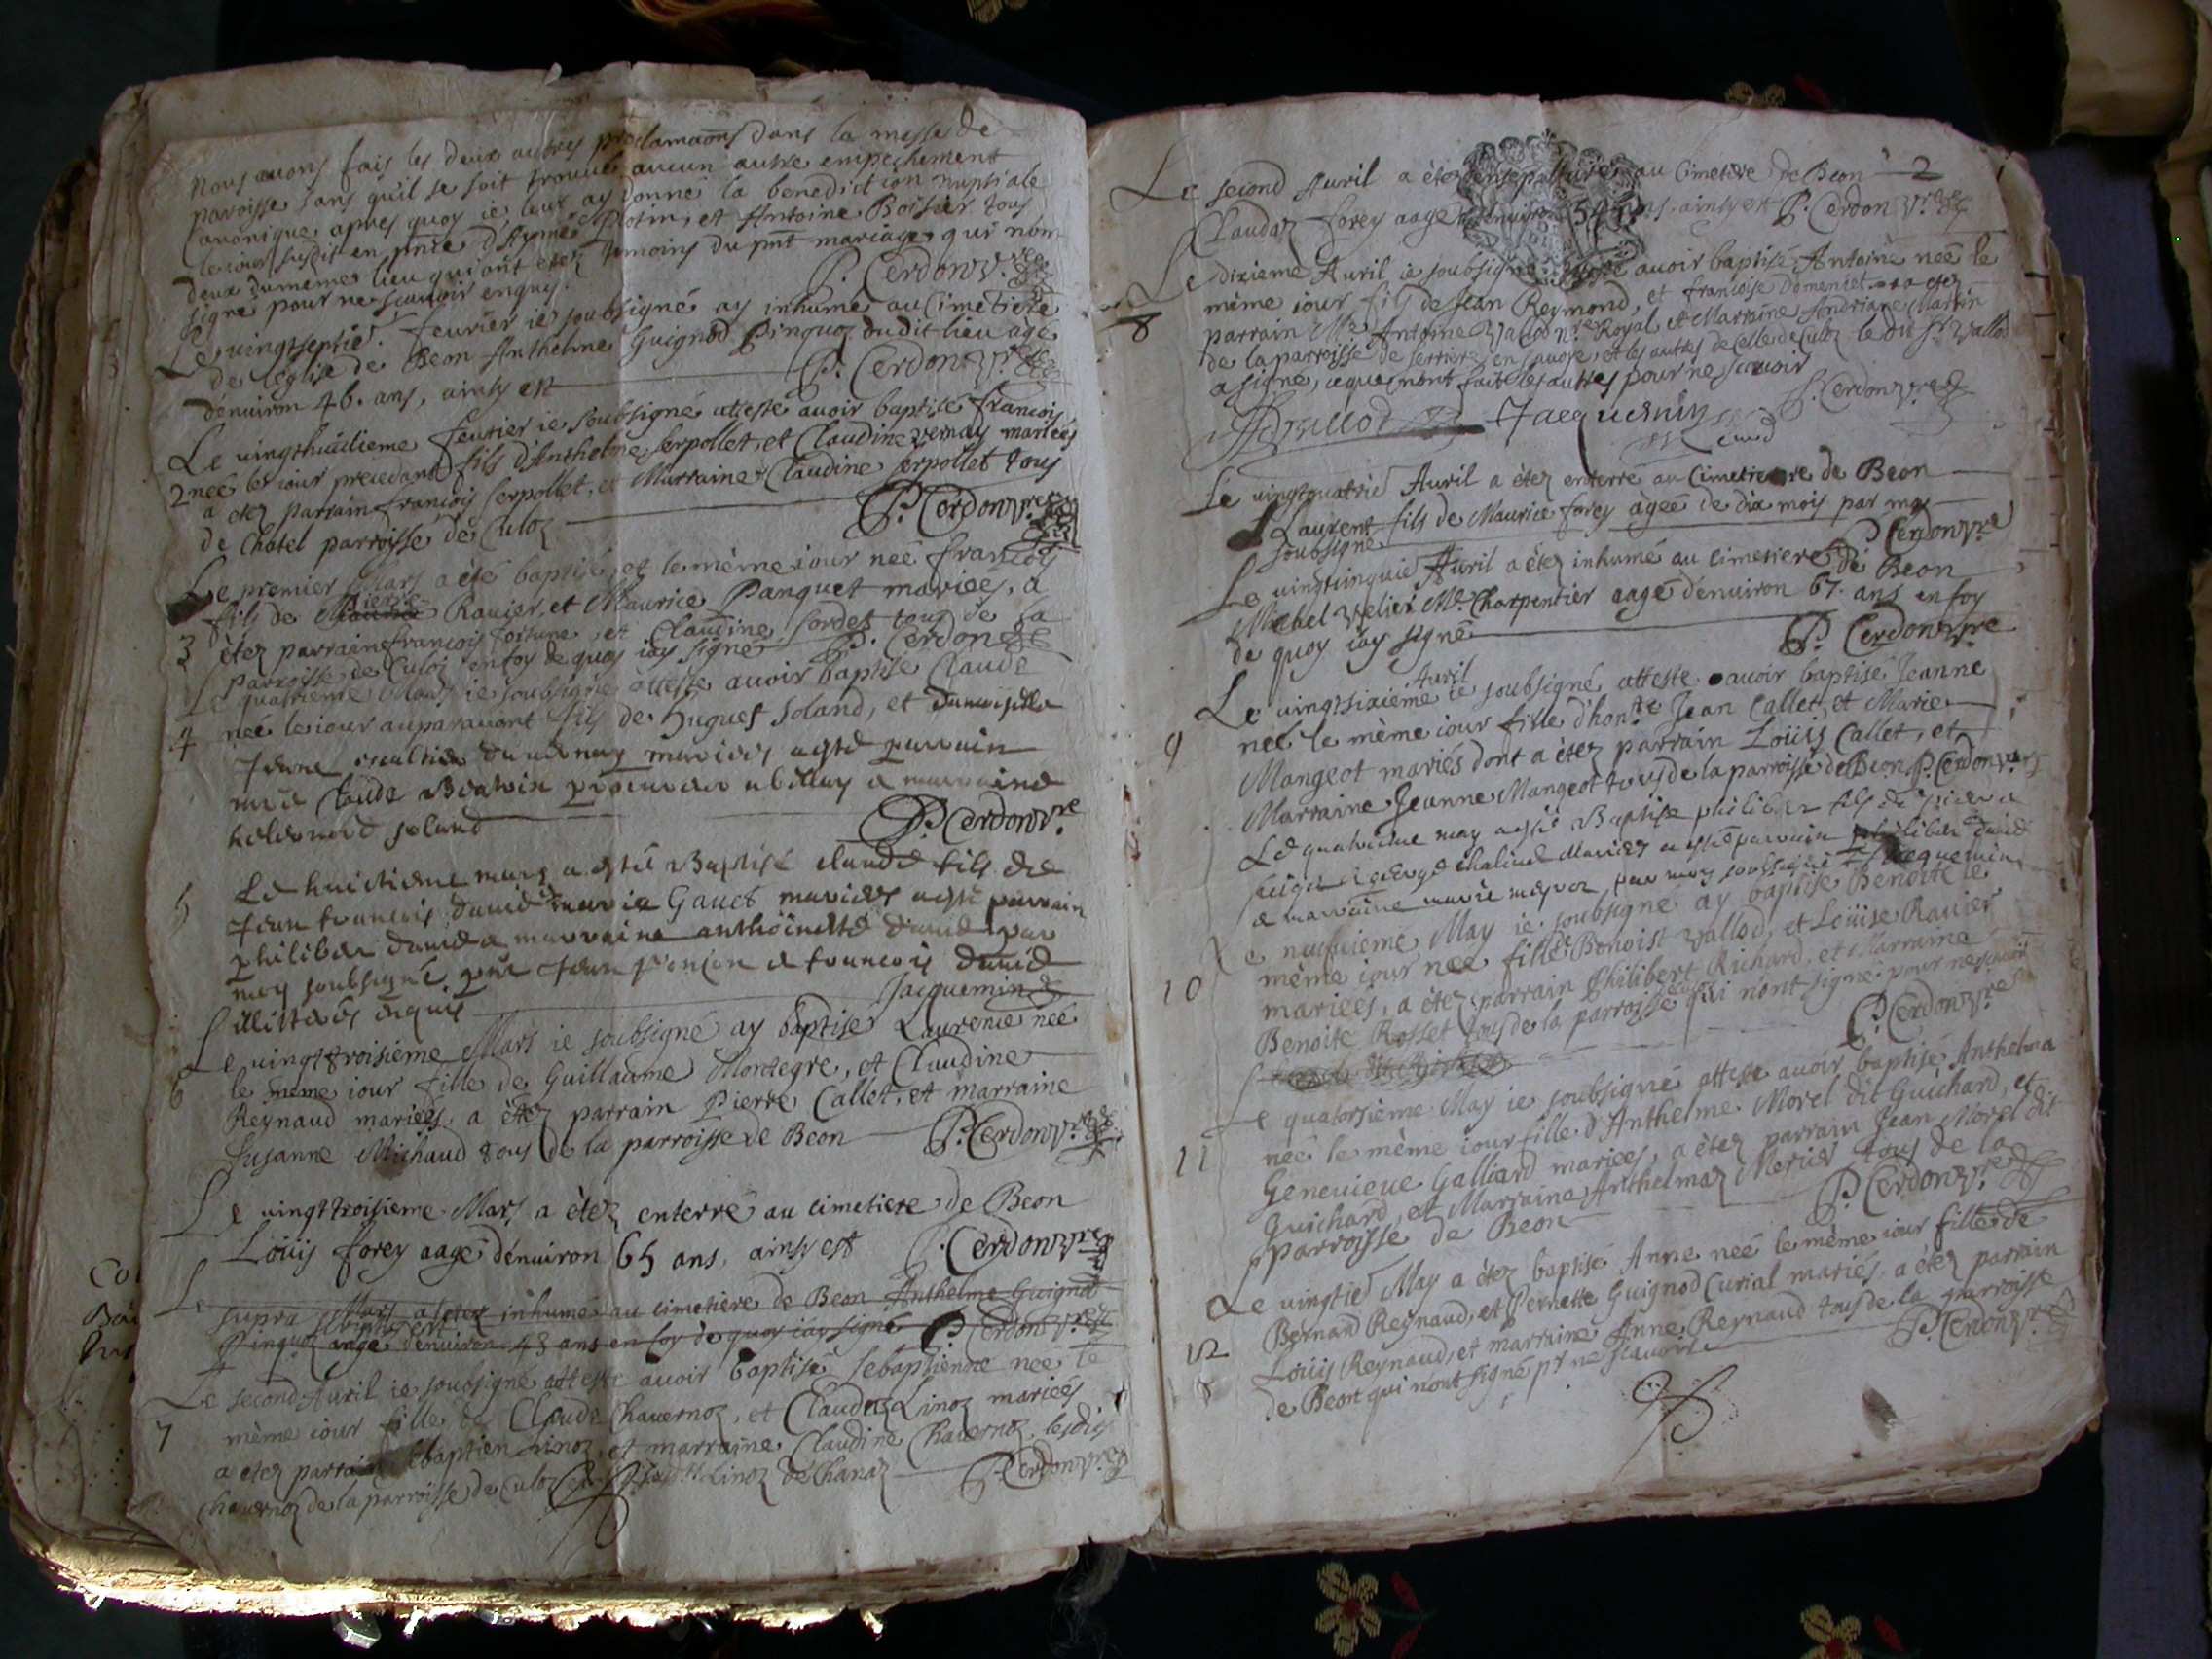 Nous avons fais les deux autres proclamaōns dans la messe de
paroisse sans qu'il se soit trouvé aucun autre empechement
canonique, apres quoy ie leur ay donné la benediction nuptiale
le iour susdit en pñce d'Aymé et Antoine Boisier tous
deux du meme lieu qui ont etez temoins du pnt mariage, qui nōn
signé pour ne sçavoir enquis. P. Cerdon v.re
Le vingtseptie. fevrier ie soubsigné ay inhumé au Cimetiere
de l'eglise de Beon Anthelme Guignod Pinquoz dudit lieu agé
d'enuiron 46. ans, ainsy est P. Cerdon v.re
Le vingthuictieme feurier ie soubsigné atteste auoir baptisé francois
2 neé le iour precedant fils d'Anthelme Serpollet, et Claudine vernay marieés
a etez parrain francois Serpollet, et Marraine Claudine Serpollet tous
de Chatel parroisse de Culoz P. Cerdon v.re
Le premier Mars a été baptisé, et le même iour neé francois
fils de Pierre Rauier, et Maurice Panquet mariees, a
3 étez parrain francois fortune, et Claudine Sordet tous de la
parroisse de Culoz en foy de quoy iay signé P. Cerdon
Le quatrieme Mars ie soubsigné atteste auoir baptisé Claude
4 neé le iour auparauant fils de Hugues Soland, et damoiselle
Jeanne du vernay maries a esté parrain
me Claude procureur a bellay & marraine
soland P. Cerdon v.re
5 Le huictieme mars a esté Baptisé claude fils de
Jean francois dauid & marie Gauet maries a esté parrain
philiber dauid & marraine anthoinette dauid par
moy soubsigné pñt Jean & francois dauid
illiterés enquis Jacquemin
Le vingttroisieme Mars ie soubsigné ay baptisé Laurence neé
6 le même iour fille de Guillaume Montegre, et Claudine
Reynaud marieés, a étez parrain Pierre Callet, et marraine
Susanne Michaud tous de la parroisse de Beon P. Cerdon v.re
Le vingttroisieme Mars a étez enterré au cimetiere de Beon
Loüis forey aagé d'enuiron 65 ans, ainsy est P. Cerdon v.re
Le supra Mars a etez inhumé au cimetiere de Beon Anthelme Guignod
Pinquoz aagé d'enuiron 43 ans en foy de quoy iay signé P. Cerdon v.re
Le second Auril ie soubsigné atteste auoir baptisé Sebastienne neé le
7 même iour fille de Claude Chauernoz, et Claudaz Linoz marieés
a etez parrain Sebaptien Linoz, et marraine Claudine Chauernoz, lesdits
Chauernoz de la parroisse de Culoz Linoz de Chanaz P. Cerdon v.re
2
Le second Auril a étez ensepulturé au Cimetire de Beon
Claudaz forey aagé d'enuiron 54 ans, ainsy est P. Cerdon v.re
Le dixieme Auril ie soubsigné atteste auoir baptisé Antoine neé le
8 même iour fils de Jean Reymond, et francoise Domenget a etez
parrain Mr. Antoine Vallod n.re Royal et Marraine Andriane Martin
de la parroisse de Serriere en Sauoye, et les autres de celle de Culoz le dit Sr. Vallod
a signé, ce que n'ont fait les autres pour ne sçauoir
Vallod Jacquemin P. Cerdon v.re
curé
Le vingtquatrie Auril a étez enterré au Cimetiere de Beon
Laurent fils de Maurice forey ageé de dix mois par moy
soubsigné P Cerdon v.re
Le vingtcinquie Auril a étez inhumé au cimetiere de Beon
Michel velier Me. Charpentier aagé d'enuiron 67. ans en foy
de quoy iay signé P. Cerdon v.re
Auril
Le vingtsixieme ie soubsigné atteste auoir baptisé Jeanne
9 neé le même iour fille d'hon.te Jean Callet, et Marie
Mangeot mariés dont a étez parrain Loüis Callet, et
Marraine Jeanne Mangeot tous de la parroisse de Beon P. Cerdon v.re
Le quatrieme may a esté Baptisé philiber fils de pierre
maries a esté parrain philiber dauid
& marraine marie par moy soubsigné Jacquemin
Le neufuieme May ie soubsigné ay baptisé Benoite le
10 même iour neé fille de Benoist vallod, et Loüise Rauier
marieés, a étez parrain Philibert Richard, et Marraine
Benoite Rosset tous de la parroisse qui n'ont signé pour ne sçauoir
P. Cerdon v.re
Le quatorsieme May ie soubsigné atteste auoir baptisé Anthelma
11 neé le même iour fille d'Anthelme Morel dit Guichard, et
Geneuieue Galliard marieés, a étez parrain Jean Morel dit
Guichard, et Marraine Anthelmaz Merier tous de la
parroisse de Beon P. Cerdon v.re
Le vingtie May a étez baptisé Anne neé le même iour fille de
12 Bernard Reynaud, et Pernette Guignod Curial mariés, a étez parrain
Loüis Reynaud, et marraine Anne Reynaud tous de la parroisse
de Beon qui n'ont signé pr ne sçauoir P. Cerdon v.re